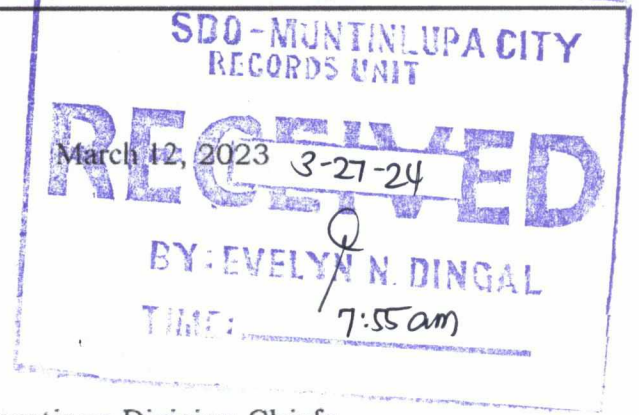 SDO-MUNTINLUPA CITY
RECORDS UNIT
RECEIVED
March 12, 2023 3-27-24
BY: EVELYN N. DINGAL
TIME: 7:55 am
Division Chief